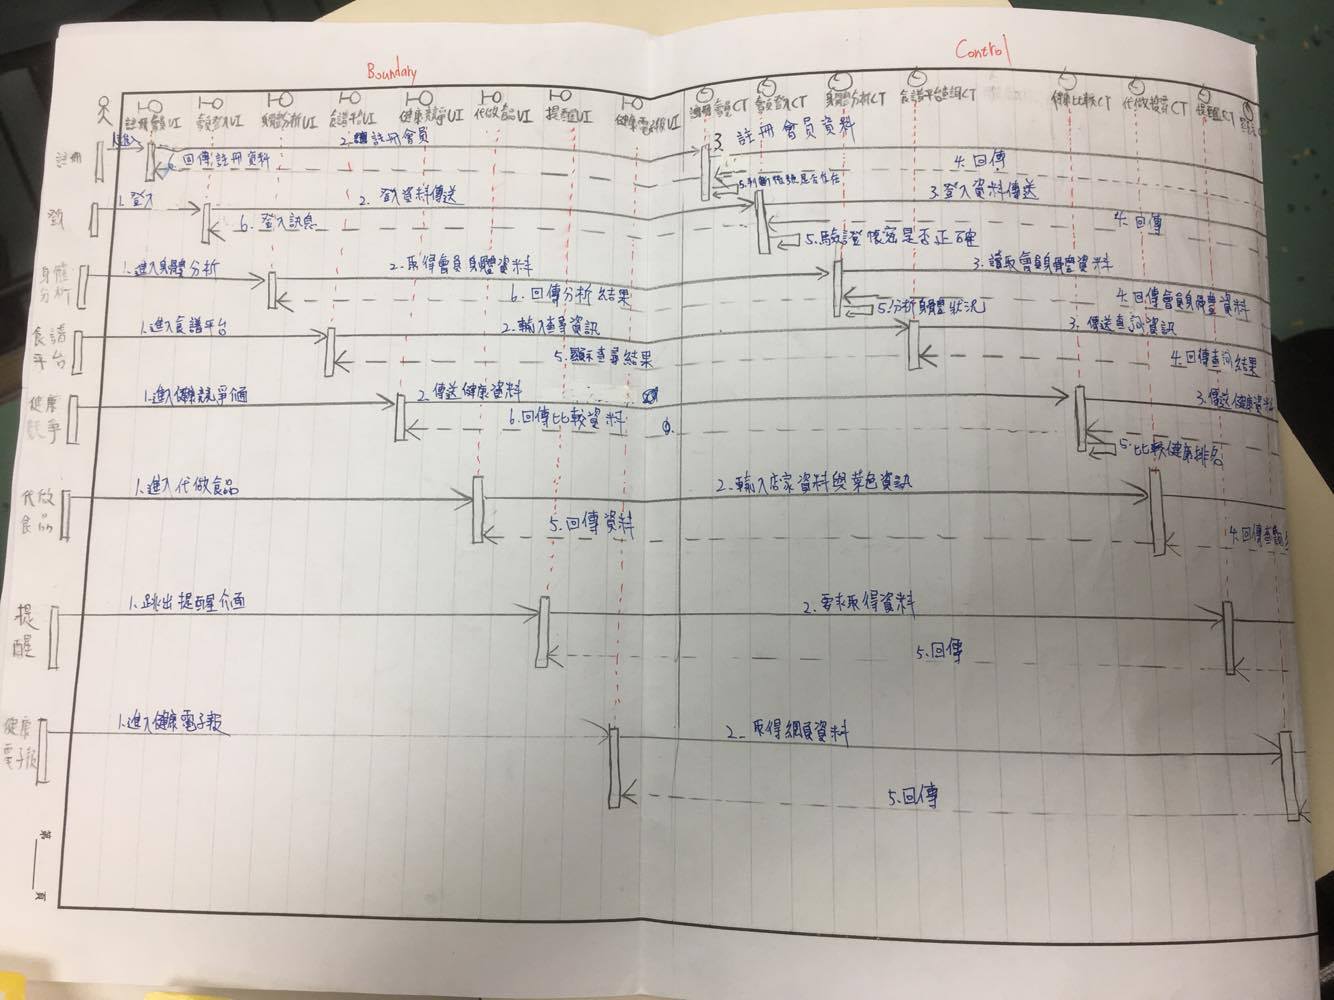 Boundary
Control
註冊會員UI
會員登入UI
身體分析UI
食譜平台UI
健康競爭UI
代做食品UI
提醒UI
健康電子報UI
註冊會員CT
會員登入CT
身體分析CT
食譜平台查詢CT
健康比較CT
提醒CT
註冊
2. 註冊會員
3. 註冊會員資料
回傳註冊資料
4. 回傳
5.判斷帳號是否存在
登入
1. 登入
2. 登入資料傳送
3. 登入資料傳送
6. 登入訊息
4. 回傳
5.驗證帳密是否正確
身體
分析
1.進入身體分析
2. 取得會員身體資料
3. 讀取會員身體資料
6. 回傳分析結果
4.回傳會員身體資料
5.分析身體狀況
食譜
平台
1.進入食譜平台
2. 輸入查尋資訊
3. 傳送查詢資訊
5. 顯示查尋結果
4.回傳查詢結果
健康
競爭
1.進入健康競爭介面
2. 傳送健康資料
3.傳送健康資料
6.回傳比較資料
5.比較健康排名
代做
食品
1.進入代做食品
2.輸入店家資料與菜色資訊
5.回傳資料
提
醒
1.跳出提醒介面
2.要求取得資料
5.回傳
健康
電子報
1.進入健康電子報
2. 取得網頁資料
5.回傳
第
頁